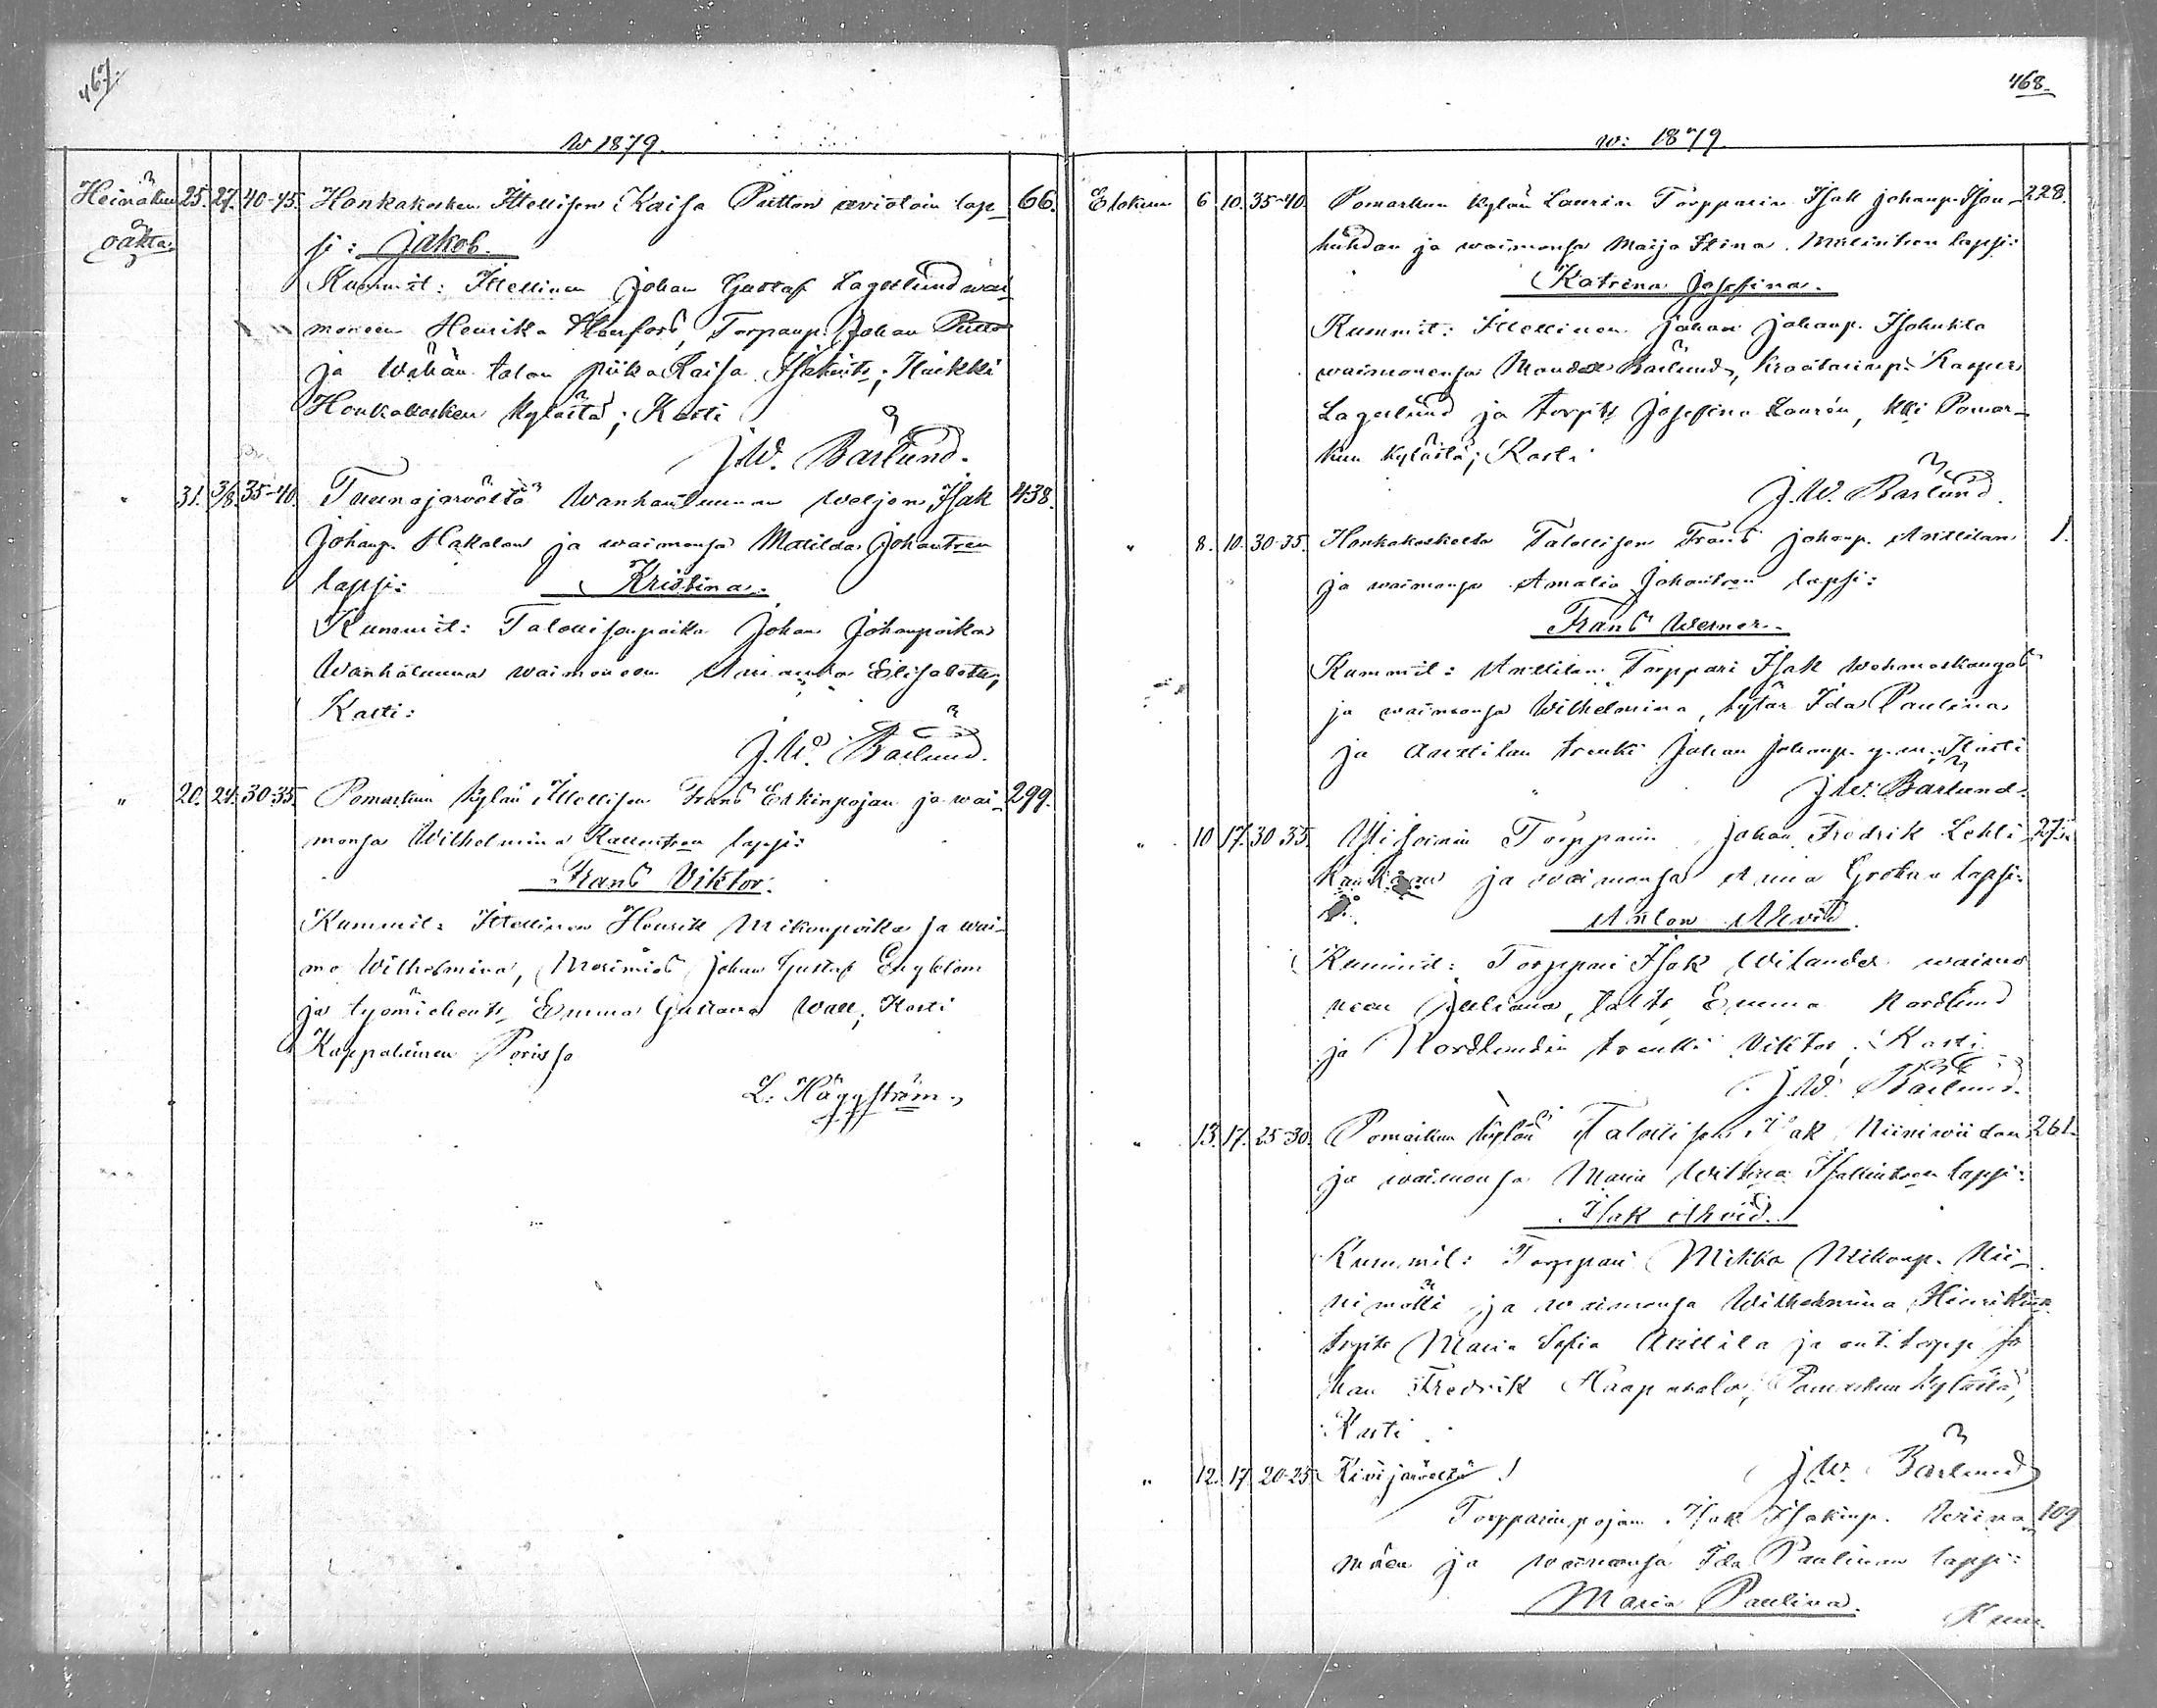 467.
W 1879.
Heinäkuu 25. 27. 40-45. Honkakosken Ittellisen Kaisa Putton aviotoin lap- 66.
oäkta si: Jakob.
Kummit: Ittellinen Johan Gustaf Lagerlund wai-
moneen Henrika, Torpanp. Johan Putto
ja Wähän talon piika Kaisa; Kaikki
Honkakosken kylästä; Kasti
J.W. Bärlund.
" 31. 3/8. 35-40. Tuunajärveltä Wanhantuunan Weljen Isak 438.
Johanp. Hakalan ja waimonsa Matilda Johantren
lapsi: Kristina.
Kummit: Talollisenpoika Johan Johanpoika
Wanhatuuna waimoneen Amanda Elisabeth,
Kasti:
J.W. Bärlund.
" 20. 24. 30-35. Pomarkun kylän Ittellisen Frans Erkinpojan ja wai- 299.
monsa Wilhelmina Kallentren lapsi:
Frans Viktor.
Kummit: Ittellinen Henrik Mikonpoika ja wai-
mo Wilhelmina, Merimies Johan Gustaf Engblom
ja työmiehent. Emma Gustava Wall; Kasti
Kappalainen Porissa
L. Häggström.
468.
w: 1879.
Elokuu 6 10. 35-40. Pomarkun kylän Laurin Torpparin Isak Johanp. Ison- 228.
huhdan ja waimonsa Maija Stina lapsi:
Katrina Josefina.
Kummit: Ittellinen Johan Johanp. Isohuhta
waimonensa Manda Bärlund, kraatarinp. Kasper
Lagerlund ja torpts Josefina Laurén, kki Pomar-
kun kylästä; Kasti
J.W. Bärlund.
" 8. 10. 30-35. Honkakoskelta Talollisen Frans Johanp. Anttilan 1.
ja waimonsa Amalia Johantren lapsi:
Frans Werner.
Kummit: Anttilan Torppari Isak
ja waimonsa Wilhelmina, tytär Ida Paulina
ja Anttilan trenki Johan Johanp. y.m. Kasti
J.W. Bärlund.
" 10 17. 30-35. Torpparin Johan Fredrik Lehti-
kankaan ja waimonsa Anna Gretan lapsi:
Anton Arvid.
Kummit: Torppari Isak Wilander waimo
neen Juliana, talts, Emma Nordlund
ja Nordlundin trenki Viktor; Kasti
J.W. Bärlund.
" 13. 17. 25-30. Pomarkun kylän Talollisen Isak Niiniwiidan 261.
ja waimonsa Maria Wiltina Isakintren lapsi:
Isak Arvid.
Kummit: Torppari Mikka Mikonp. Nii-
nimätti ja waimonsa Wilhelmina Henrikint.
trpts Maria Sofia Anttila ja ent. torpp. Jo
han Fredrik Haapanala, Pomarkun kylästä,
Kasti
J.W. Bärlund
" 12. 17. 20-25. Kivijärveltä
Torpparinpojan Isak Isakinp. 109
mäen ja waimonsa Ida Paulinan lapsi:
Maria Paulina.
Kum-